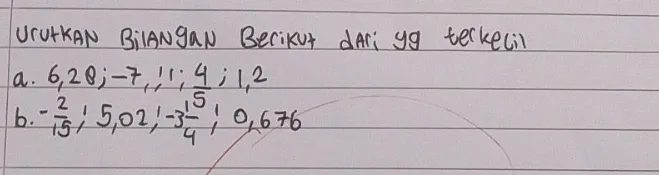 Urutkan Bilangan Berikut dari yg terkecil
a. 6,28; -7,11; 4/5; 1,2
b. -2/15; 5,02; -3 1/4; 0,676